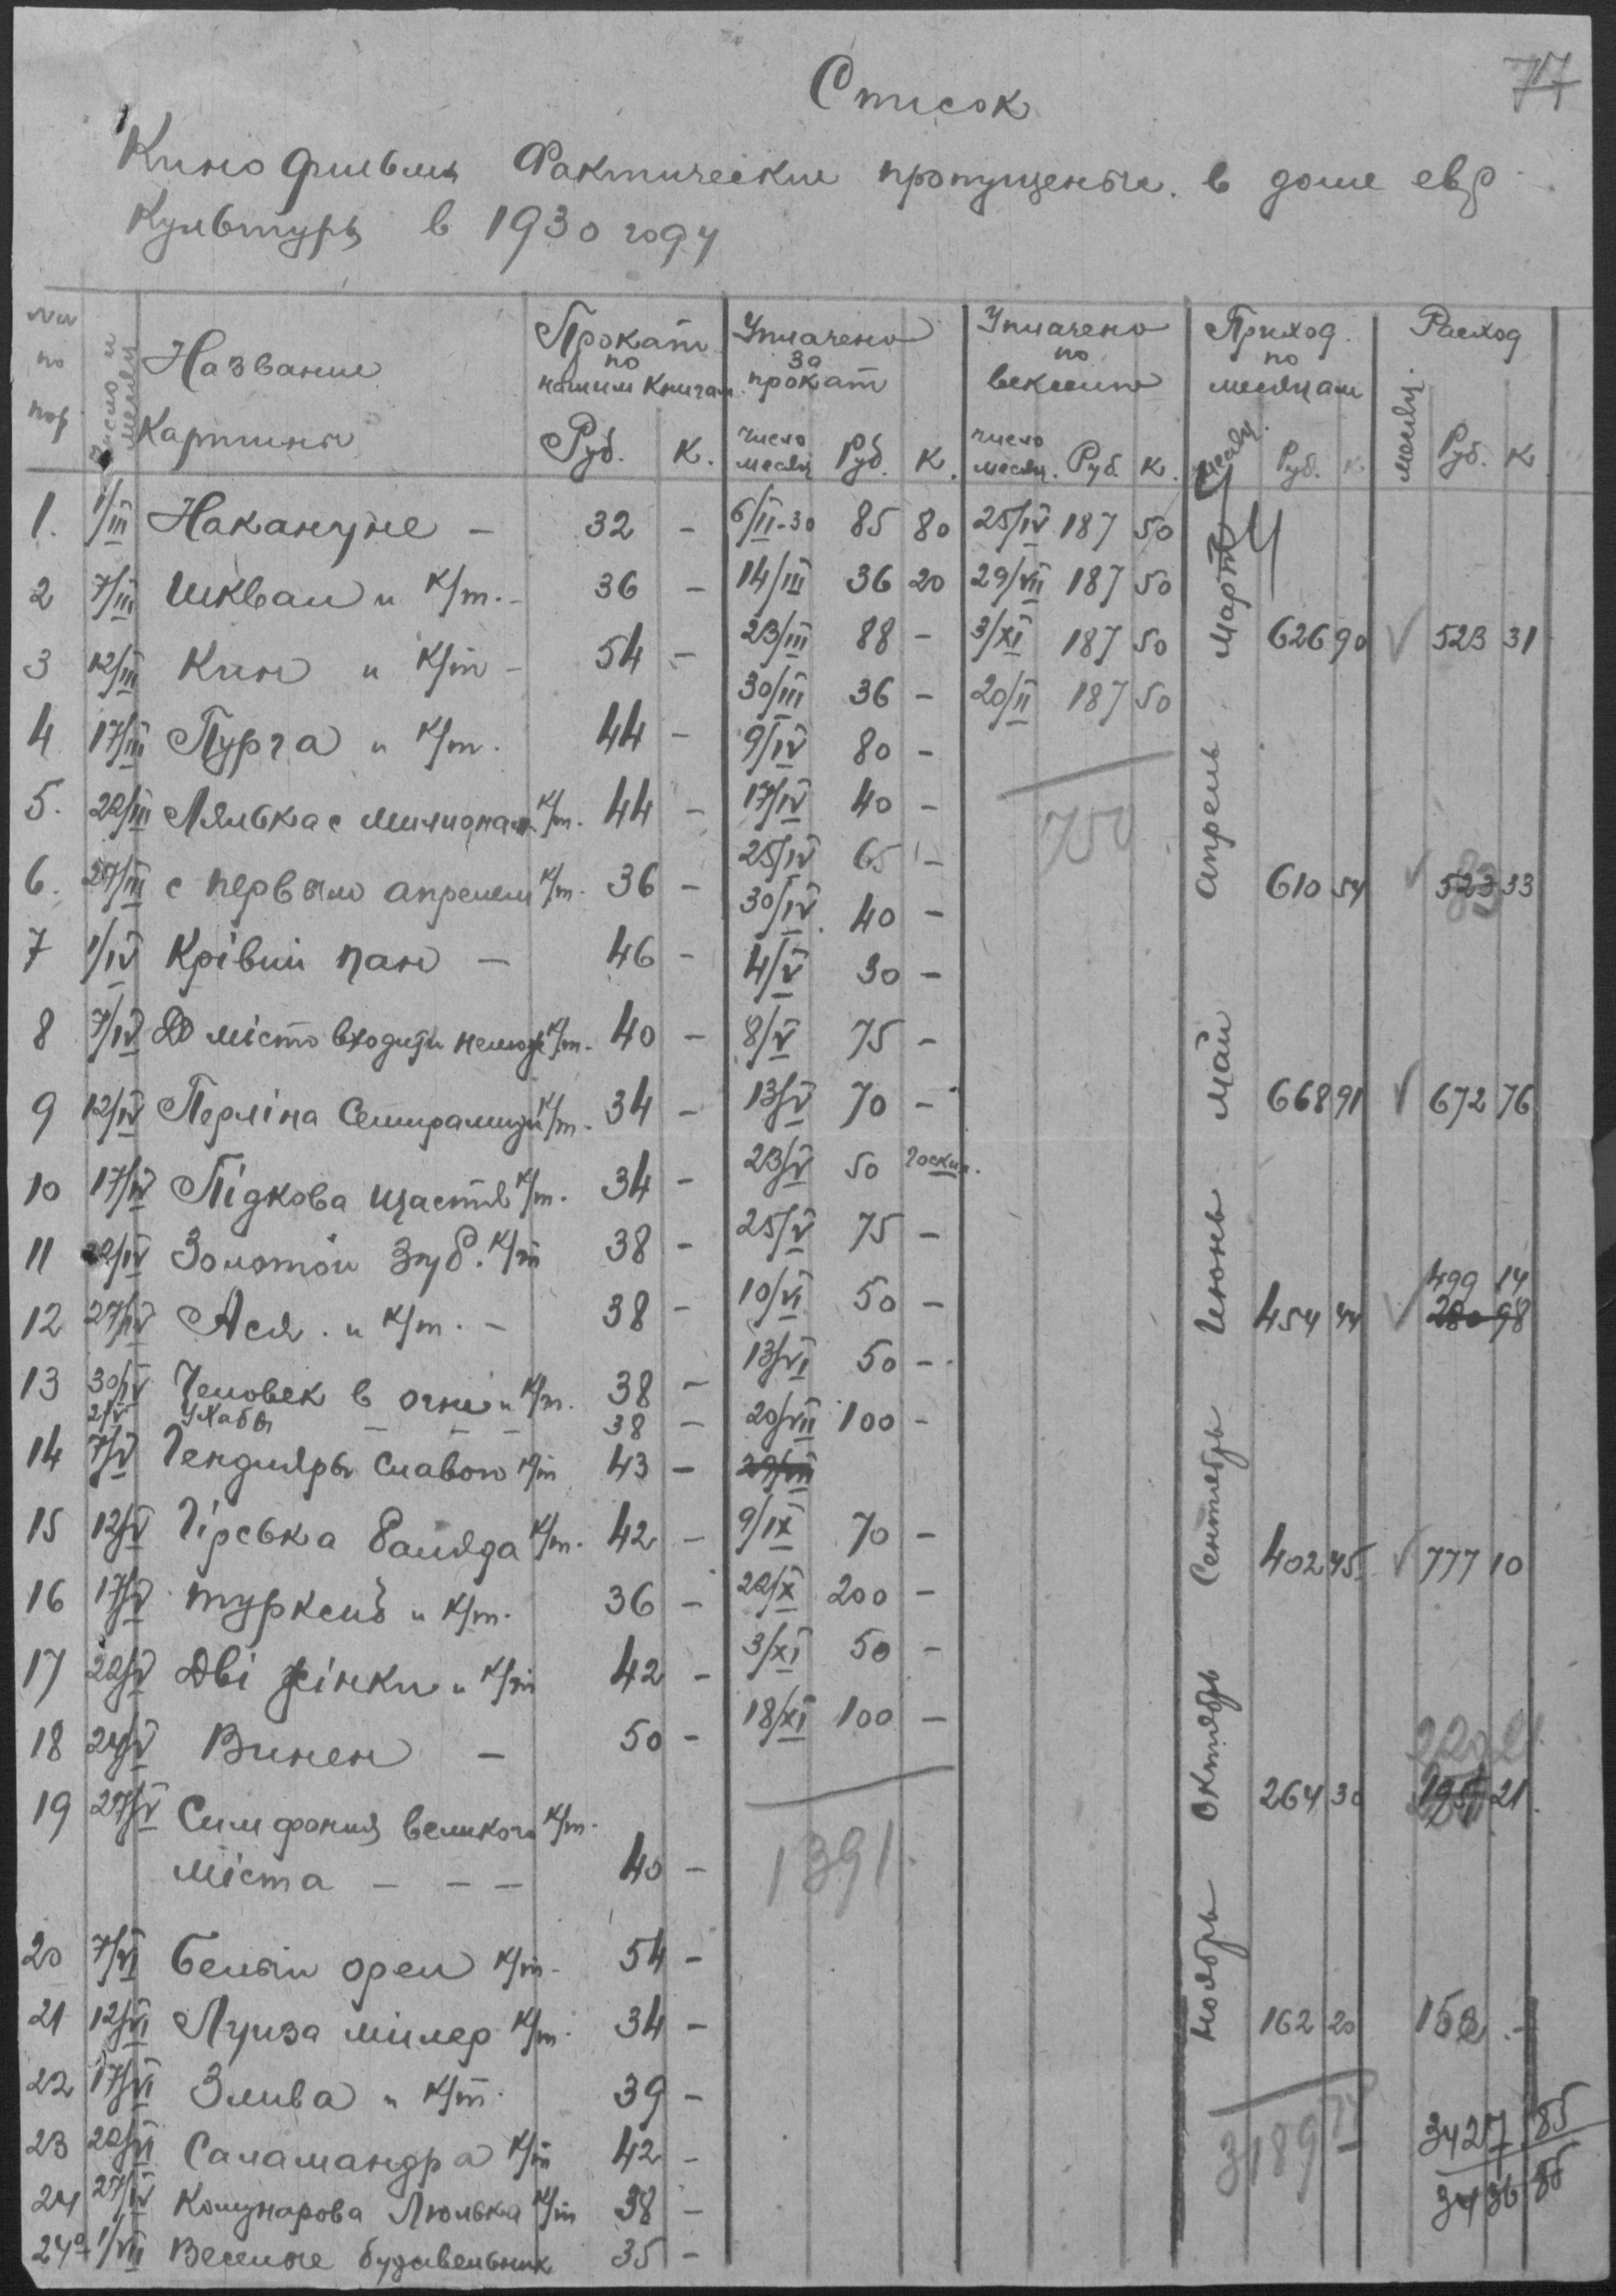 77
Список
Кино фильмы Фактически пропущеные в доме евр
Культуры в 1930 году
№№ по пор | Число и месяц | Название Картины | Прокат по нашим книгам Руб. К. | Уплачено за прокат число месяц Руб. К. | Уплачено по векселю число месяц. Руб. К. | Приход по месяцам месяц. Руб. К | Расход месяц. Руб. К
1. 1/III Накануне – 32 – 6/II-30 85 80 25/IV 187 50
2 7/III Шквал и К/т. – 36 – 14/III 36 20 29/VII 187 50
23/III 88 – 3/XI 187 50 Март 626 90 √ 523 31
3 12/III Кин и К/т – 54 –
30/III 36 – 20/II 187 50
4 17/III Пурга и К/т. 44 – 9/IV 80 –
5. 22/III Лялька с милионами К/т. 44 – 17/IV 40 – 750
25/IV 65 –
6. 27/III с первым апрелем К/т. 36 – Апрель 610 54 √ 523 33
30/IV 40 –
7 1/IV Крівий пан – 46 – 4/V 30 –
8 7/IV До місто входити неможе К/т. 40 – 8/V 75 –
9 12/IV Перліна Семирамиди К/т. 34 – 13/V 70 – Май 668 91 √ 672 76
10 17/IV Підкова щастя К/т. 34 – 23/V 50 Госкин.
11 22/IV Золотой Зуб. К/т 38 – 25/V 75 –
499 14
12 27/IV Ася. и К/т. – 38 – 10/VI 50 – Июонь 454 44 √ 280 98
13 30/IV Человек в огне и К/т. 38 – 13/VI 50 –
2/V Ухабы – – – 38 – 20/VII 100 –
14 7/V Гендляры Славою К/т 43 – 29/VII
15 12/V Гірська баляда К/т. 42 – 9/IX 70 – Сентябрь 402 45 √ 777 10
16 17/V Турксиб и К/т. 36 – 22/X 200 –
17 22/V Дві жінки и К/т 42 – 3/XI 50 –
18 24/V Винен – 50 – 18/XI 100 –
220 21
19 27/V Симфония великого К/т. Октябрь 264 30 21
міста – – – 40 – 1391
20 7/VI Белый орел К/т. 54 –
21 12/VI Луиза мілер К/т. 34 – Ноябрь 162 20 152 –
22 17/VI Злива и К/т. 39 –
23 22/VI Саламандра К/т 42 – 3189 74 3427 85
24 27/IV Комунарова Люлька К/т 38 – 3436 85
24а 1/VII Веселые будивельник 35 –